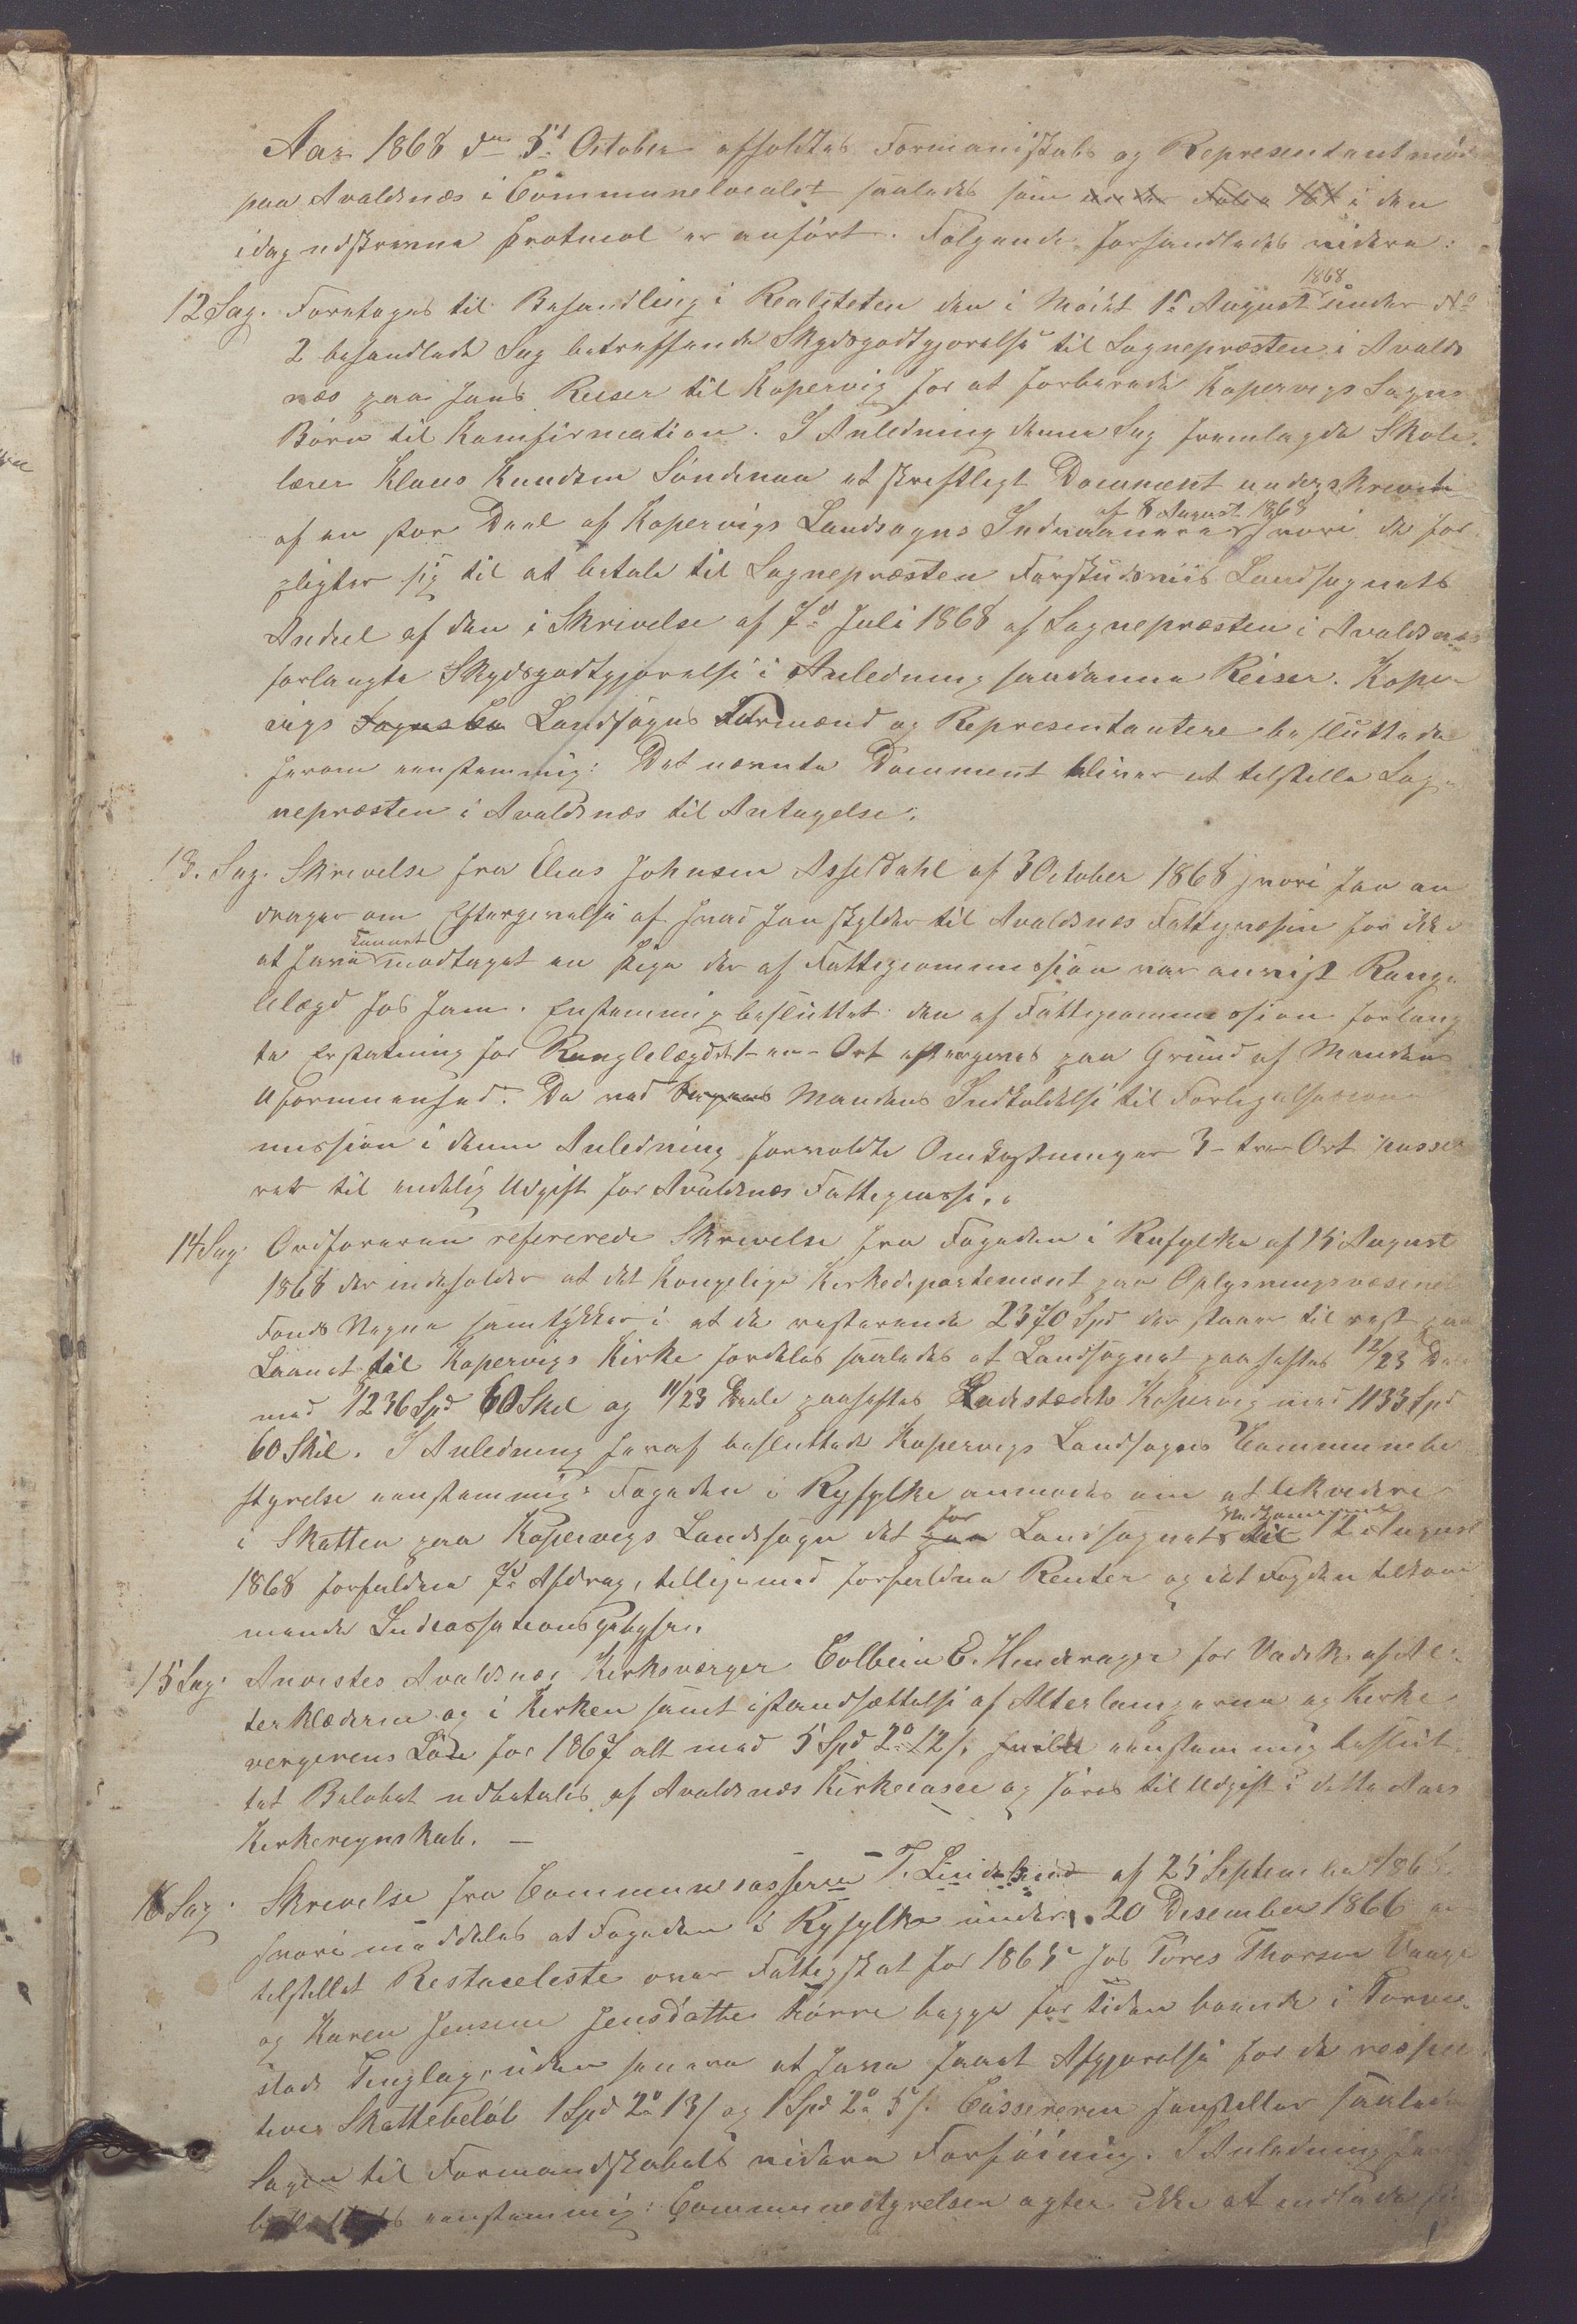 Aar 1868 den 5t October afholdtes Formandskabs og Representantmöde
paa Avaldsnæs i Communelocalet saaledes som i den
idag udskrevne Protocol er anfört. Fölgende forhandledes videre:
12 Sag. Foretoges til Behandling i Realiteten den i Mödet 15 August 1868 under No
2 behandlede Sag betreffende Skydsgodtgjörelse til Sognepræsten i Avalds
næs paa hans Reiser til Kopervig for at forberede Kopervigs Sogns
Börn til Konfirmation. I Anledning denne Sag fremlagde Skole-
lærer Klaus Knudsen Söndenaa et skriftligt Document underskrevet
af en stor Deel af Kopervigs Landsogns Indvaanere af 8 August 1868 hvori de for
pligter sig til at betale til Sognepræsten Forskudsviis Landsognets
Andeel af den i Skrivelse af 7d Juli 1868 af Sognepræsten i Avaldsnæs
forlangte Skydsgodtgjörelse i Anledning saadanne Reiser. Koper
vigs Landsogns Formænd og Representantere besluttede
herom eenstemmig: Det nævnte Document bliver at tilstille Sog-
nepræsten i Avaldsnæs til Antagelse.
13. Sag. Skrivelse fra Elias Johnsen Asheldahl af 3 October 1868 hvori han an
drager om Eftergivelse af hvad han skylder til Avaldsnæs Fattigvæsen for ikke
at have kunnet modtaget en Pige der af Fattigcommissionen var anvist Rang-
lelægd hos ham. Enstemmig besluttet: den af Fattigcommissionen forlang
te Erstatning for Ranglelægdet 1 - en - Ort eftergives paa Grund af Mandens
Uformuenhed. De ved Mandens Indkaldelse til Forligelsescom
mission i denne Anledning forvoldte Omkostninger 3 - tre Ort passe
ret til endelig Udgift for Avaldsnæs Fattigcasse.
14 Sag. Ordföreren refererede Skrivelse fra Fogeden i Ryfylke af 15 August
1868 der indeholder at det Kongelige Kirkedepartement paa Oplysningsvæsenets
Fonds Vegne samtykker i at de resterende 2370 Spd der staaer til rest paa
Laanet til Kopervigs Kirke fordeles saaledes at Landsognet paahæftes 12/23 Dele
med 1236 Spd 60 Skil og 11/23 Deele paahæftes Ladestædet Kopervig med 1133 Spd
60 Skil. I Anledning heraf besluttede Kopervigs Landsogns Communebe
styrelse eenstemmig: Fogeden i Ryfylke anmodes om at likvidere
i Skatten paa Kopervigs Landsogn det for Landsognets Vedkommende 12 August
1868 forfaldne 7de Afdrag, tilligemed forfaldne Renter og det Fogden tilkom
mende Indcassationsgebyhr.
15 Sag. Anvistes Avaldsnæs Kirkeværger Colbein E. Hinderager for Vadsk af Al-
terklæderne og i Kirken samt istandsættelse af Alterlamperne og Kirke
vergerens Lön for 1867 alt med 5 Spd 2o 12/. eenstemmig beslut
tet Belöbet udbetales af Avaldsnæs Kirkecasse og föres til Udgift i dette Aars
Kirkeregnskab. —
16 Sag. Skrivelse fra Communecasserer T. Lindstrand af 25 September 1868
hvori meddeles at Fogeden i Ryfylke under 20 Desember 1866 er
tilstillet Restanceliste over Fattigskat for 1865 hos Töres Thorsen Vaage
og Karen Jensine Jensdatter Körre begge for tiden boende i Torve-
stads Tinglag, uden senere at have faaet Afgjörelse for de respec
tive Skattebelöb 1 Spd 2o 13/ og 1 Spd 2o 5/. Cassereren henstiller saaledes
Sagen til Formandskabets videre Forföining. I Anledning heraf
eenstemmig: Communestyrelsen agter ikke at indlade sig